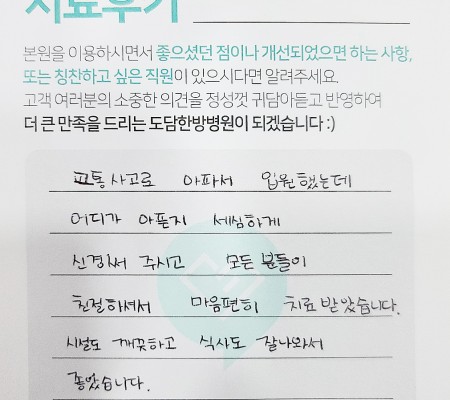 치료후기
본원을 이용하시면서 좋으셨던 점이나 개선되었으면 하는 사항,
또는 칭찬하고 싶은 직원이 있으시다면 알려주세요.
고객 여러분의 소중한 의견을 정성껏 귀담아듣고 반영하여
더 큰 만족을 드리는 도담한방병원이 되겠습니다 :)
교통사고로 아파서 입원했는데
어디가 아픈지 세심하게
신경써 주시고 모든 분들이
친절하셔서 마음편히 치료 받았습니다.
시설도 깨끗하고 식사도 잘나와서
좋았습니다.